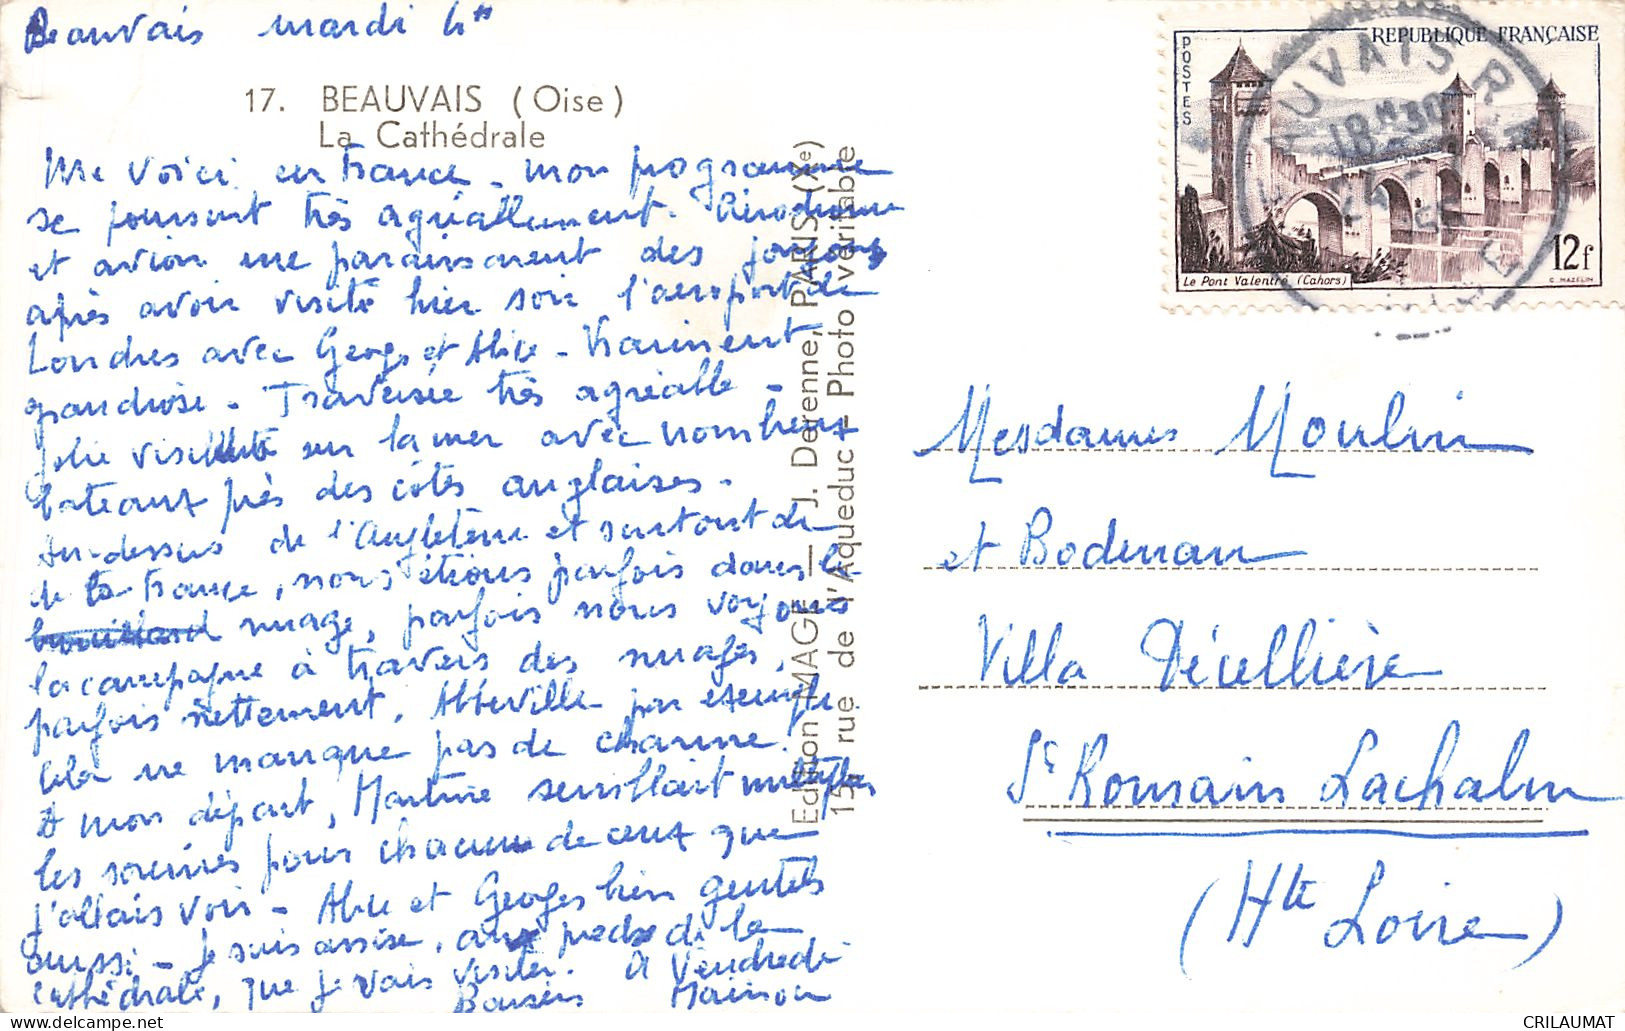 Beauvais mardi 4h
17. BEAUVAIS (Oise)
La Cathédrale
Me voici en France - mon programme
se poursuit très agréablement. Aérodrome
et avion me paraissaient des joujoux
après avoir visité hier soir l'aéroport de
Londres avec Georges et Alice - Vraiment
grandiose - Traversée très agréable -
jolie visibilité sur la mer avec nombreux
bateaux près des côtes anglaises -
Au-dessus de l'Angleterre et surtout de
de la France, nous étions parfois dans le
brouillard nuage, parfois nous voyions
la campagne à travers des nuages,
parfois nettement, Abbeville par exemple
Cela ne manque pas de charme.
A mon départ, Martine semblait
les sourires pour chacun de ceux que
j'allais voir - Alice et Georges bien gentils
aussi - Je suis assise, aux pieds de la
Cathédrale, que je vais visiter. A Vendredi
Baisers Mainou
Edition MAGE — J. Derenne, PARIS (Xe)
15, rue de l'Aqueduc - Photo véritable
POSTES
REPUBLIQUE FRANÇAISE
Le Pont Valentré (Cahors)
12f
C. MAZELIN
BEAUVAIS R.P.
18H30
OISE
Mesdames Moulin
et Bodinan
Villa Décellière
St Romain Lachalm
(Hte Loire)
CRILAUMAT